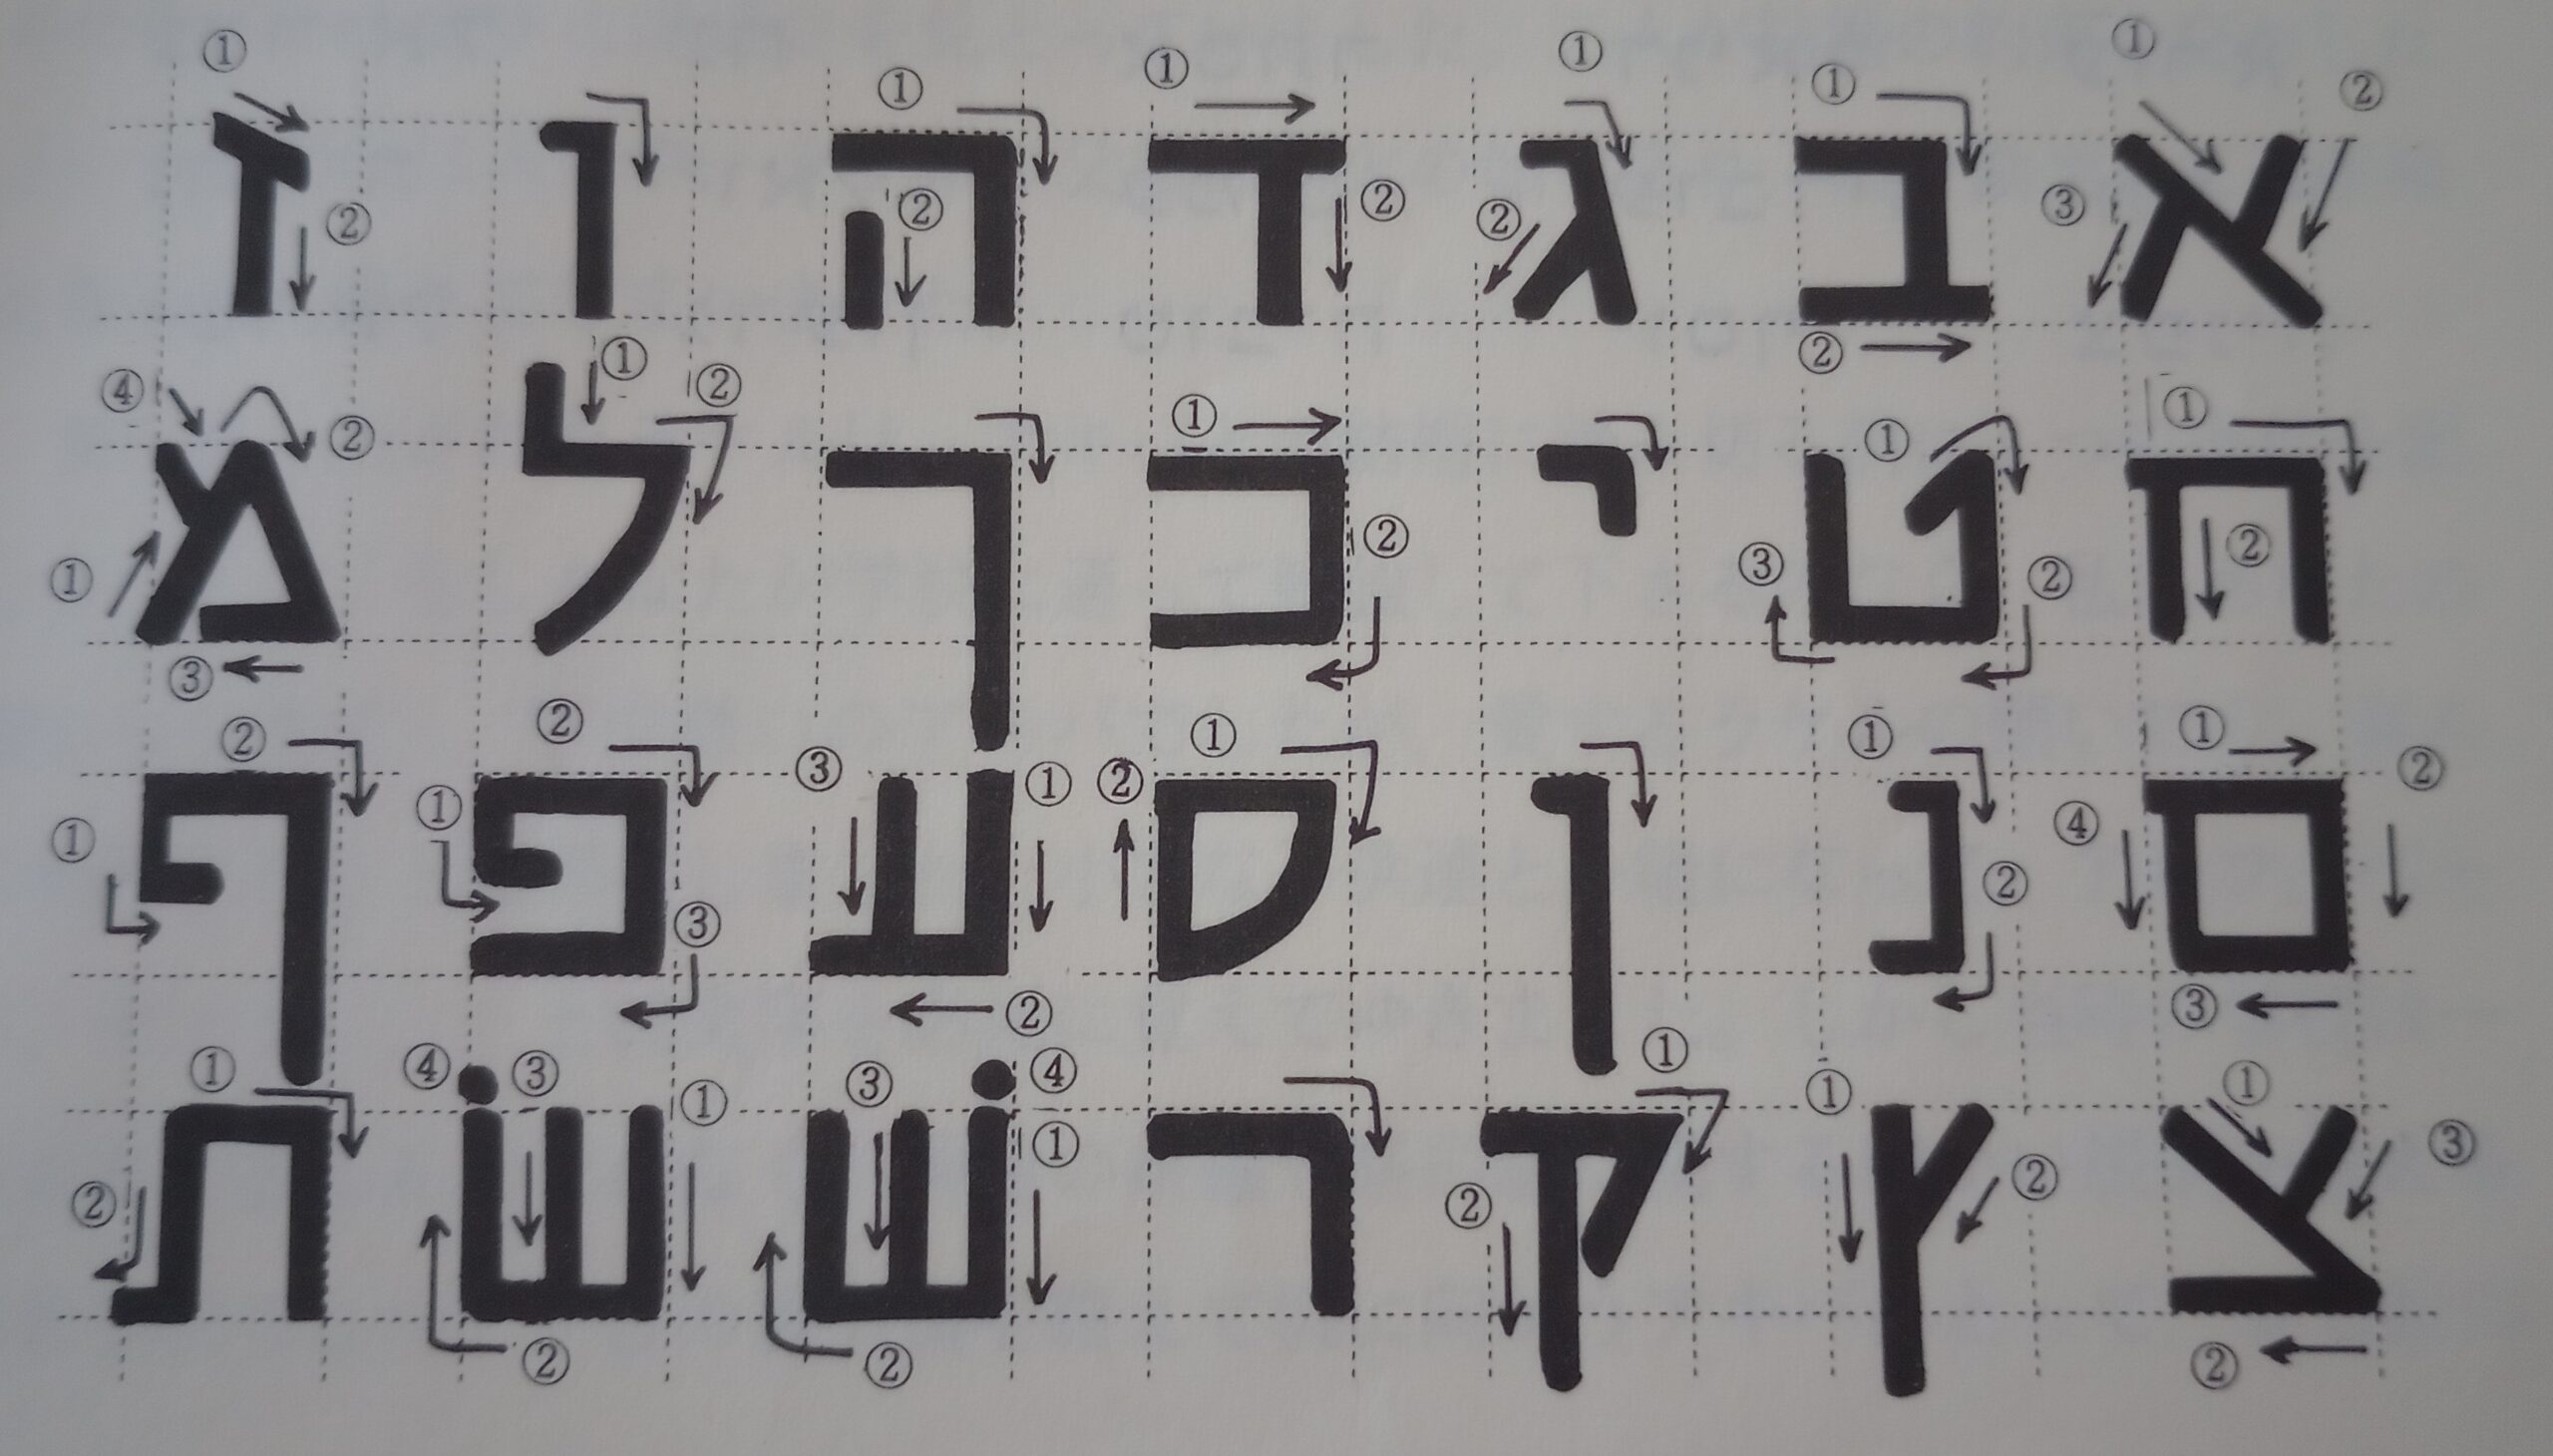 א ב ג ד ה ו ז
ח ט י כ ך ל מ
ם נ ן ס ע פ ף
צ ץ ק ר שׁ שׂ ת